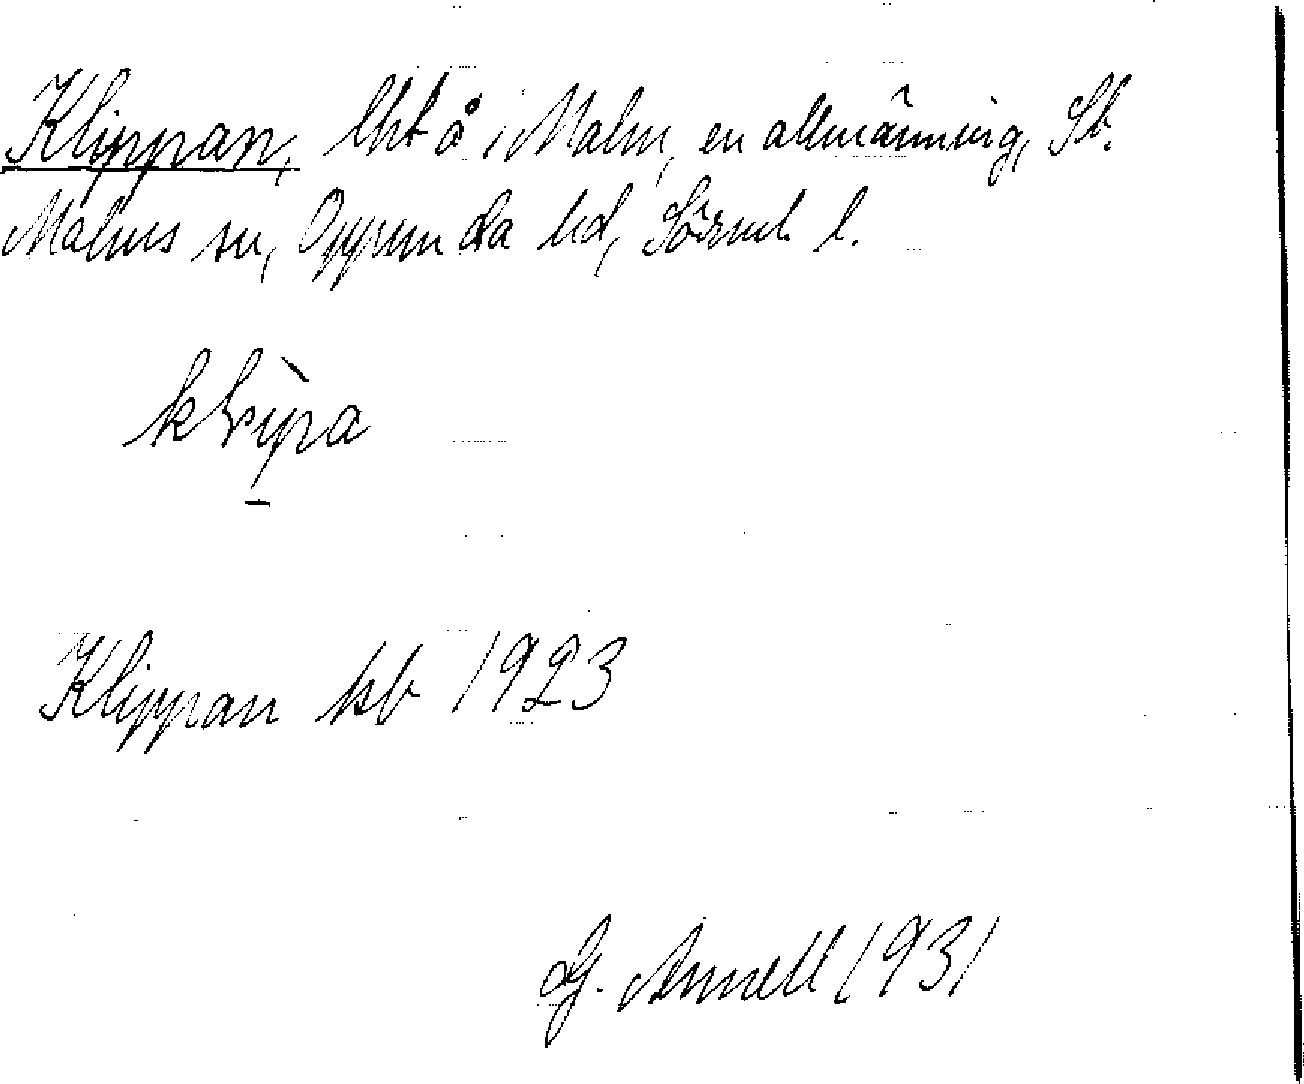 Klippan, lht å Malm, en allmänning, St.
Malms sn, Oppunda hd, Sörml. l.
Klippan kb 1923
G. Annell 1931